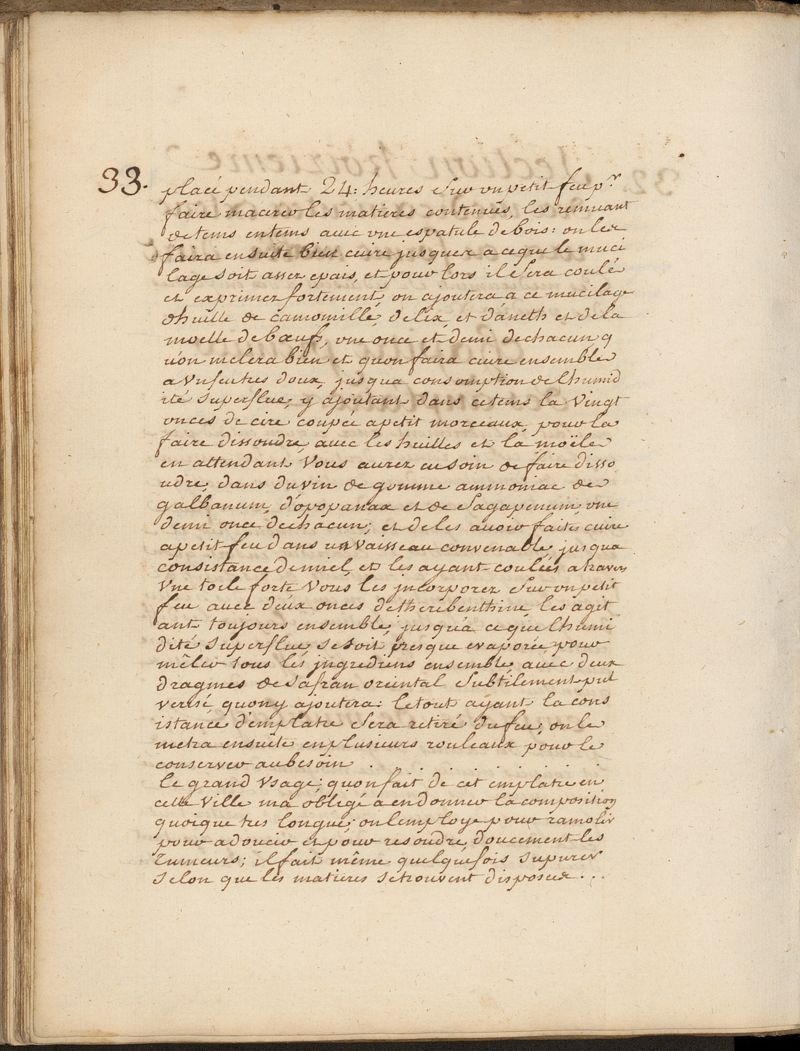 33.
placé pendant 24: heures sur un petit feu pr
faire macerer les matieres contenües, les remuant
de tems entems avec une espatule de bois: on les
faira ensuite bien cuire jusques a ceque le muci
lage soit assez epais, et pour lors il sera coulé
et exprimer fortement on ajoutera a ce mucilage
dhuille de camomille, de lix, et daneth et de la
moelle de bœufs, une once et demi de chacun q
uon melera bien et quon faira cuire ensemble
a un feu tres doux, jusqua consomption de lhumid
ité superflue, y ajoutant dans cetems la vingt
onces de cire coupée apetit morceaux pour la
faire dissoudre avec les huilles et la moële
en attendant vous aurez eu soin de faire disso
udre, dans du vin de gomme ammoniac de
galbanum, d'opopanax et de sagapenum, une
demi once de chacun; et de les avoir faites cuire
apetit feu dans un vaisseau convenable, jusqua
consistance de miel, et les ayant coulées a travers
une toile forte vous les jncorporez sur un petit
feu avec deux onces de therebenthine, les agit
ant toujours ensemble, jusqu'a ce que lhumi
dité superflue se soit presque evaporée pour
mêler tous les jngrediens ensemble avec deux
dragmes de safran oriental subtilement pul
verisé quony ajoutera: le tout ayant la cons
istance d'emplatre sera retiré du feu, on le
metra ensuite en plusieurs rouleaux pour le
conserver au besoin . . . . . . . .
Le grand vsage; quon fait de cet emplatre en
cette ville m'a obligé a en donner la composition
quoique tres longue; on lemploye pour ramolir
pour adoucir et pour resoudre, doucement les
tumeurs; il fait même quelquefois supurer
selon que les matieres se trouvent disposées . . .